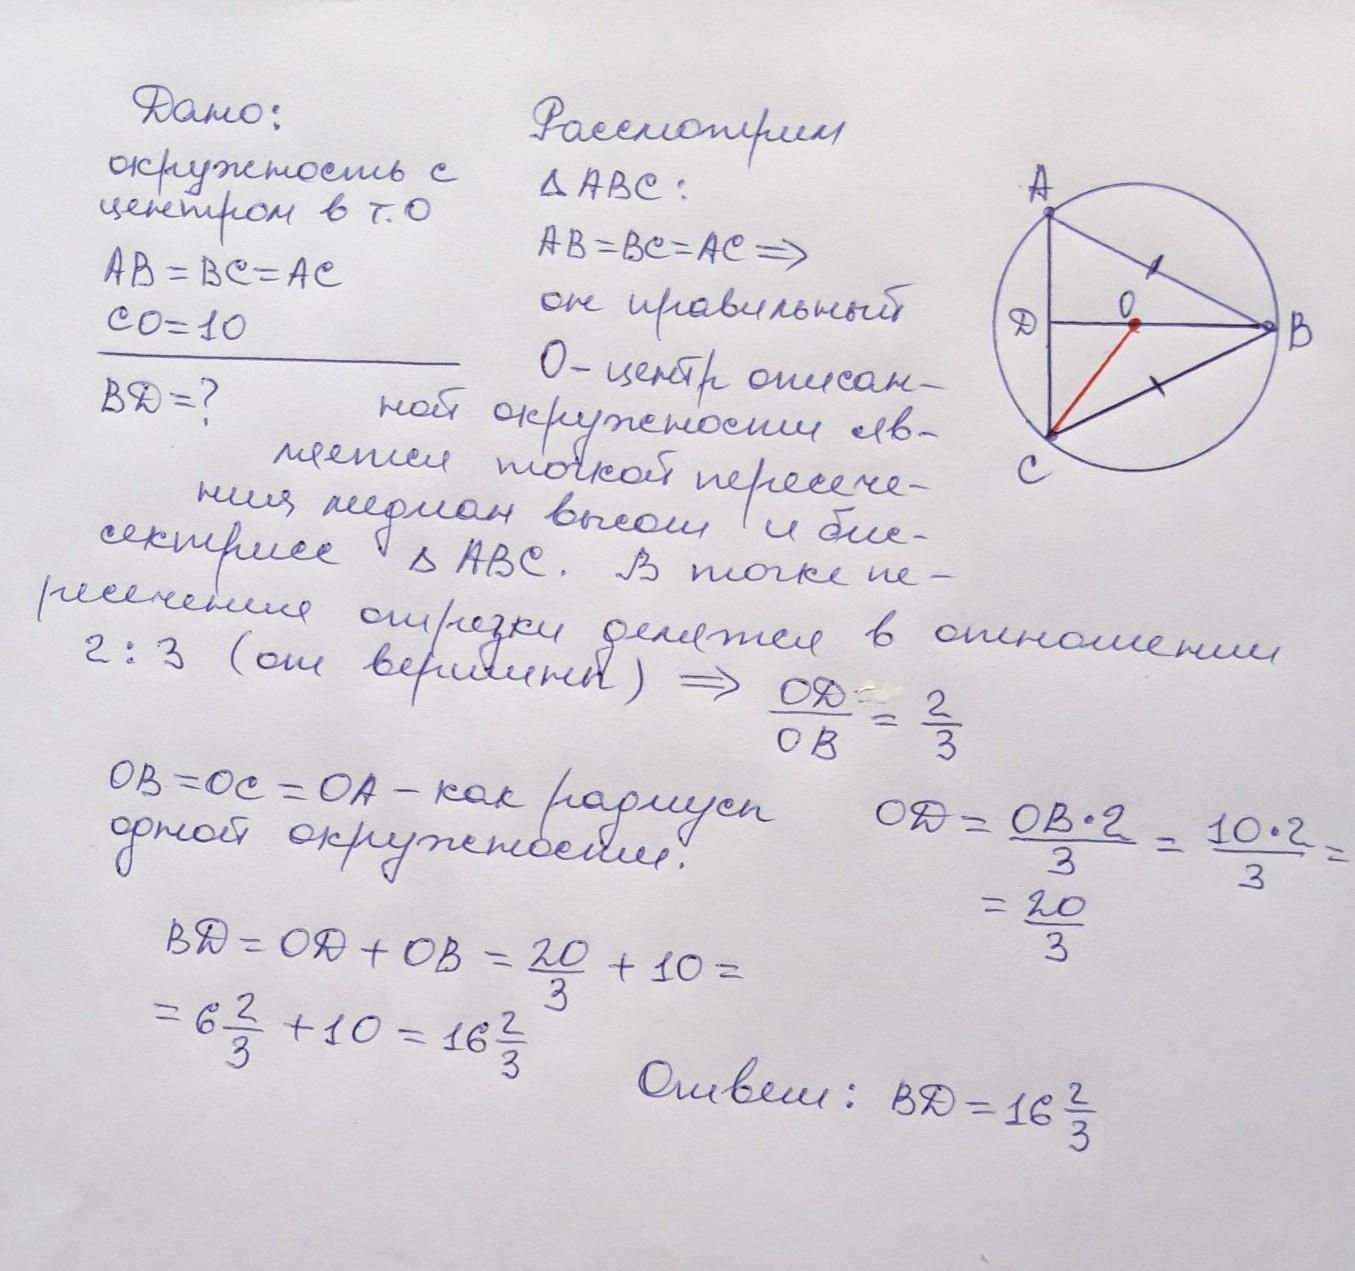 Дано:
окружность с
центром в т.О
AB=BC=AC
CO=10
BD=?
Рассмотрим
△ABC:
AB=BC=AC⇒
он правильный
О-центр описан-
ной окружности яв-
ляется точкой пересече-
ния медиан высот и бис-
сектрисс △ABC. В точке пе-
ресечения отрезки делятся в отношении
2:3 (от вершины) ⇒ OD/OB = 2/3
OB=OC=OA-как радиусы
одной окружности.
OD = OB·2/3 = 10·2/3 =
= 20/3
BD=OD+OB=20/3+10=
=6 2/3+10=16 2/3
Ответ: BD=16 2/3
A
D
O
B
C